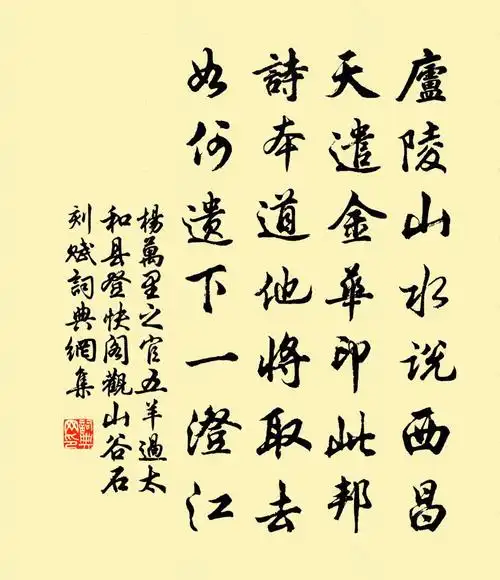 廬陵山水說西昌
天遣金華印此邦
詩本道他將取去
如何遺下一澄江
楊萬里之官五羊過太
和县登快阁觀山谷石
刻賦詞典網集
詞典
网印